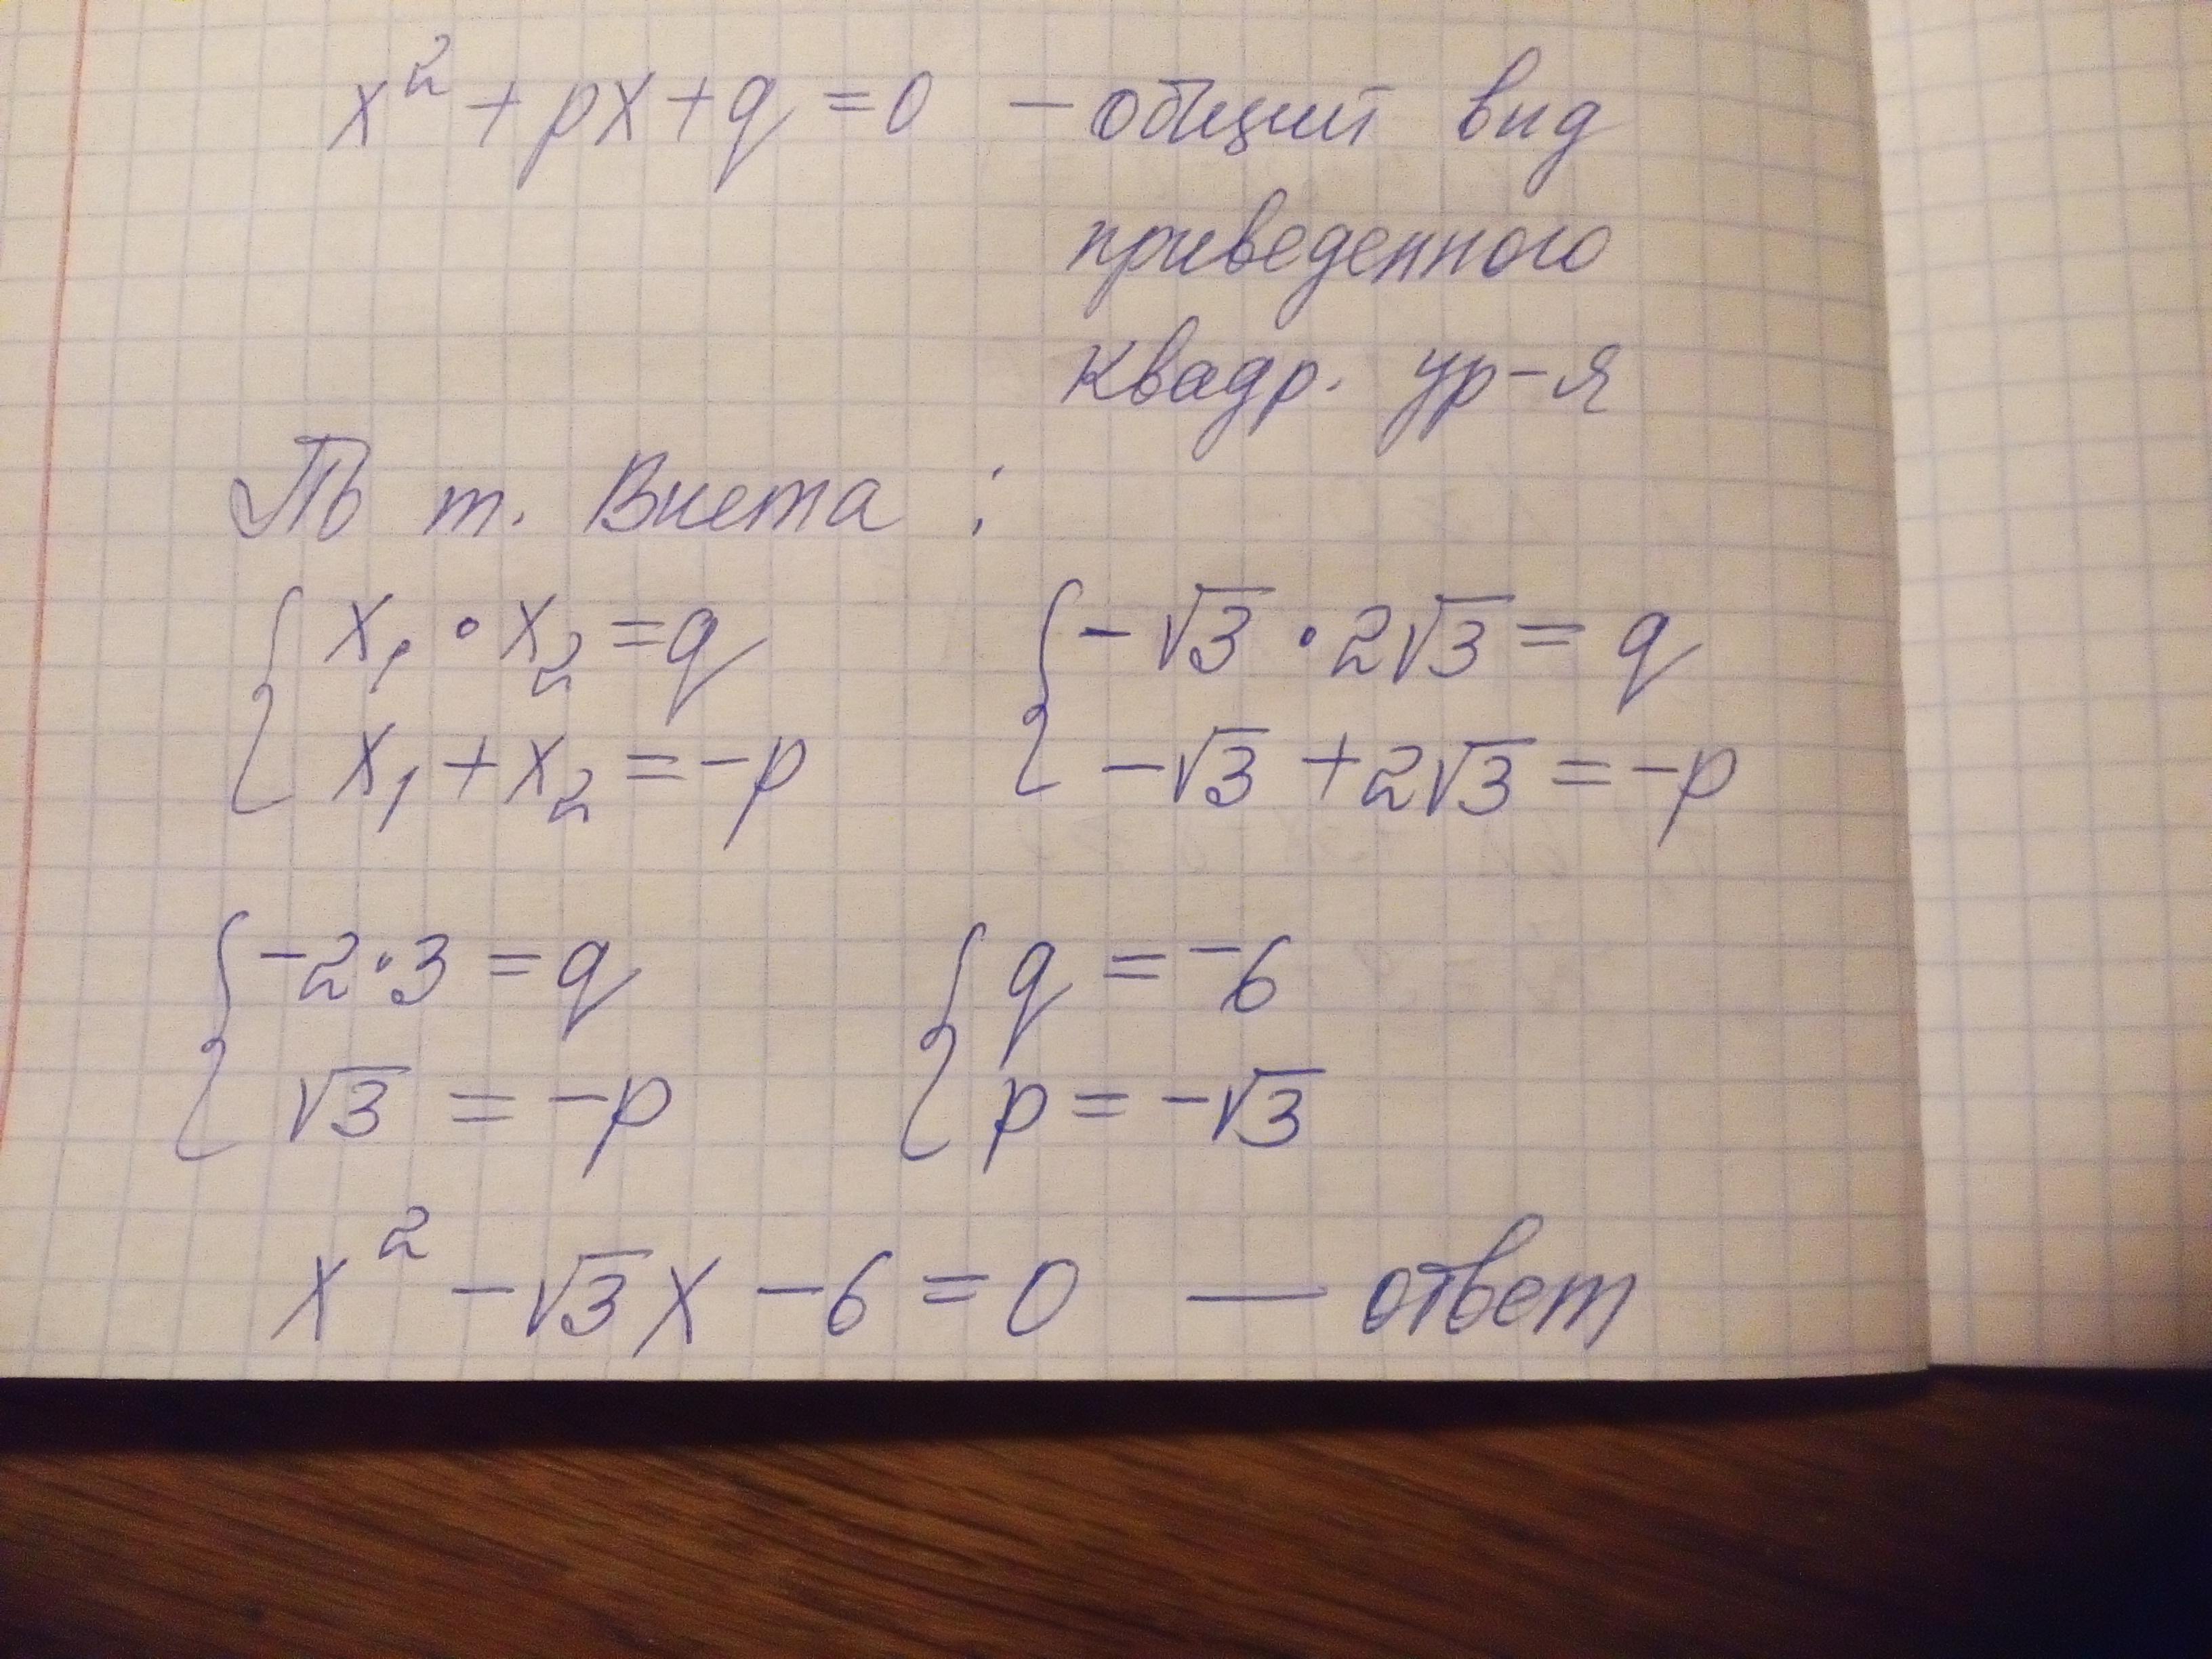 x² + px + q = 0 — общий вид
приведенного
квадр. ур-я
По т. Виета :
{ x₁ · x₂ = q { -√3 · 2√3 = q
{ x₁ + x₂ = -p { -√3 + 2√3 = -p
{ -2 · 3 = q { q = -6
{ √3 = -p { p = -√3
x² - √3x - 6 = 0 — ответ